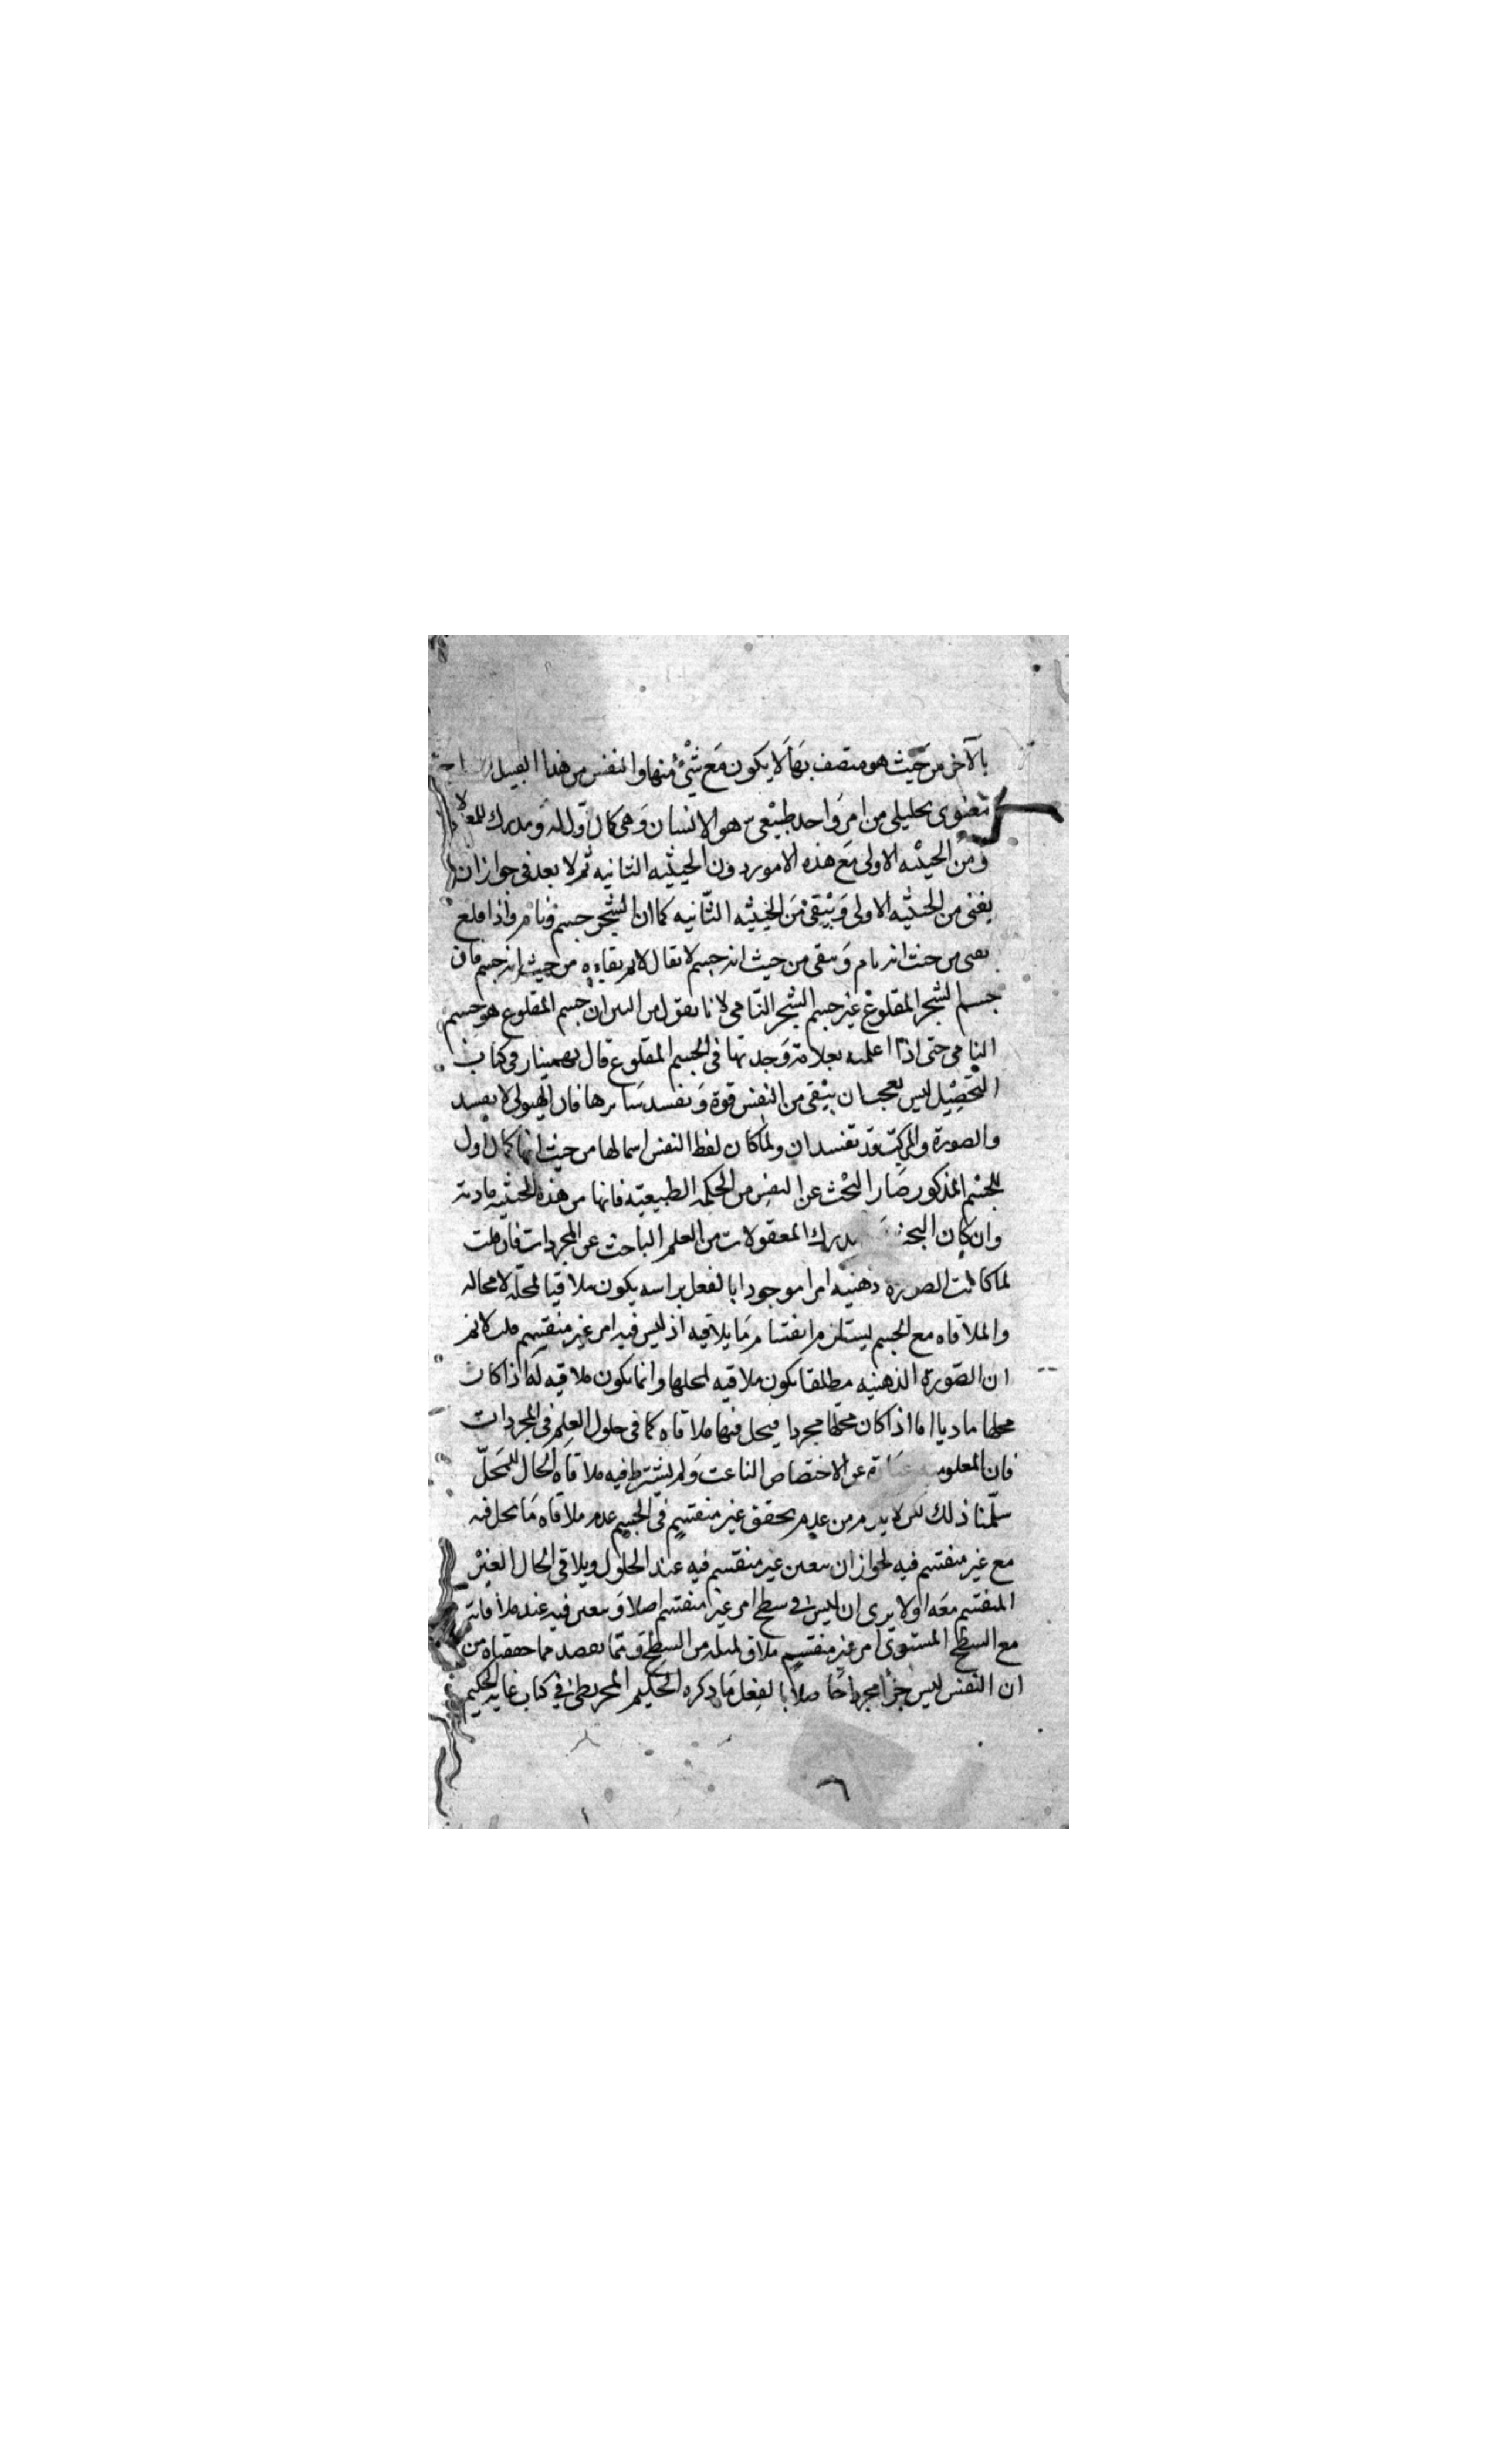 بالآخر من حيث هو متصف بها لا يكون مع شيء منها والنفس من هذا القبيل
معنوى تحليلى من امر واحد طبيعى هو الانسان وهى كمال اول له ومدرك للمعقولا
ومن الحيثيه الاولى مع هذه الامور دون الحيثيه الثانيه ثم لا بعد فى جواز ان
يفنى من الحيثيه الاولى ويبقى من الحيثيه الثانيه كما ان الشجر جسم ونام واذا قلع
يفنى من حيث انه نام ويبقى من حيث انه جسم لا يقال لانم بقاءه من حيث انه جسم فان
جسم الشجر المقلوع غير جسم الشجر النامى لانا نقول من البين ان جسم المقلوع هو جسم
النامى حتى اذا اعلمته بعلامة وجدتها فى الجسم المقلوع قال بهمنيار فى كتاب
التحصيل ليس بعجب ان يبقى من النفس قوة وتفسد سائرها فان الهيولى لا تفسد
والصورة والمركب قد تفسدان ولما كان لفظ النفس اسما لها من حيث انها كمال اول
للجسم المذكور صار البحث عن النفس من الحكمه الطبيعية فانها من هذه الحيثيه مادية
وان كان البحث يدرك المعقولات من العلم الباحث عن المجردات فان قلت
لما كانت الصورة ذهنيه امرا موجودا بالفعل براسه يكون ملاقيا لمحله لا محاله
والملاقاه مع الجسم يستلزم انقسام ما يلاقيه اذ ليس فيه امر غير منقسم قلت لانم
ان الصورة الذهنيه مطلقا يكون ملاقيه لمحلها وانما يكون ملاقيه له اذا كان
محلها ماديا اما اذا كان محلها مجردا فيحل فيها ملاقاه كما فى حلول العلم فى المجردات
فان عبارة عن الاختصاص الناعت ولم يشترط فيه ملاقاه الحال للمحل
سلمنا ذلك لكن لا يلزم من عدم تحقق غير منقسم فى الجسم عدم ملاقاه ما يحل فيه
مع غير منقسم فيه لجواز ان يتعين غير منقسم فيه عند الحلول ويلاقى الحال الغير
المنقسم معه اولا يرى ان ليس فى سطح امر غير منقسم اصلا ويتعين فيه عند ملاقاته
مع السطح المستوى امر غير منقسم ملاق لمثله من السطح ومما يعضد ما حققناه من
ان النفس ليس جزأ مجردا حاصلا بالفعل ما ذكره الحكيم المجريطى فى كتاب غايه الحكيم